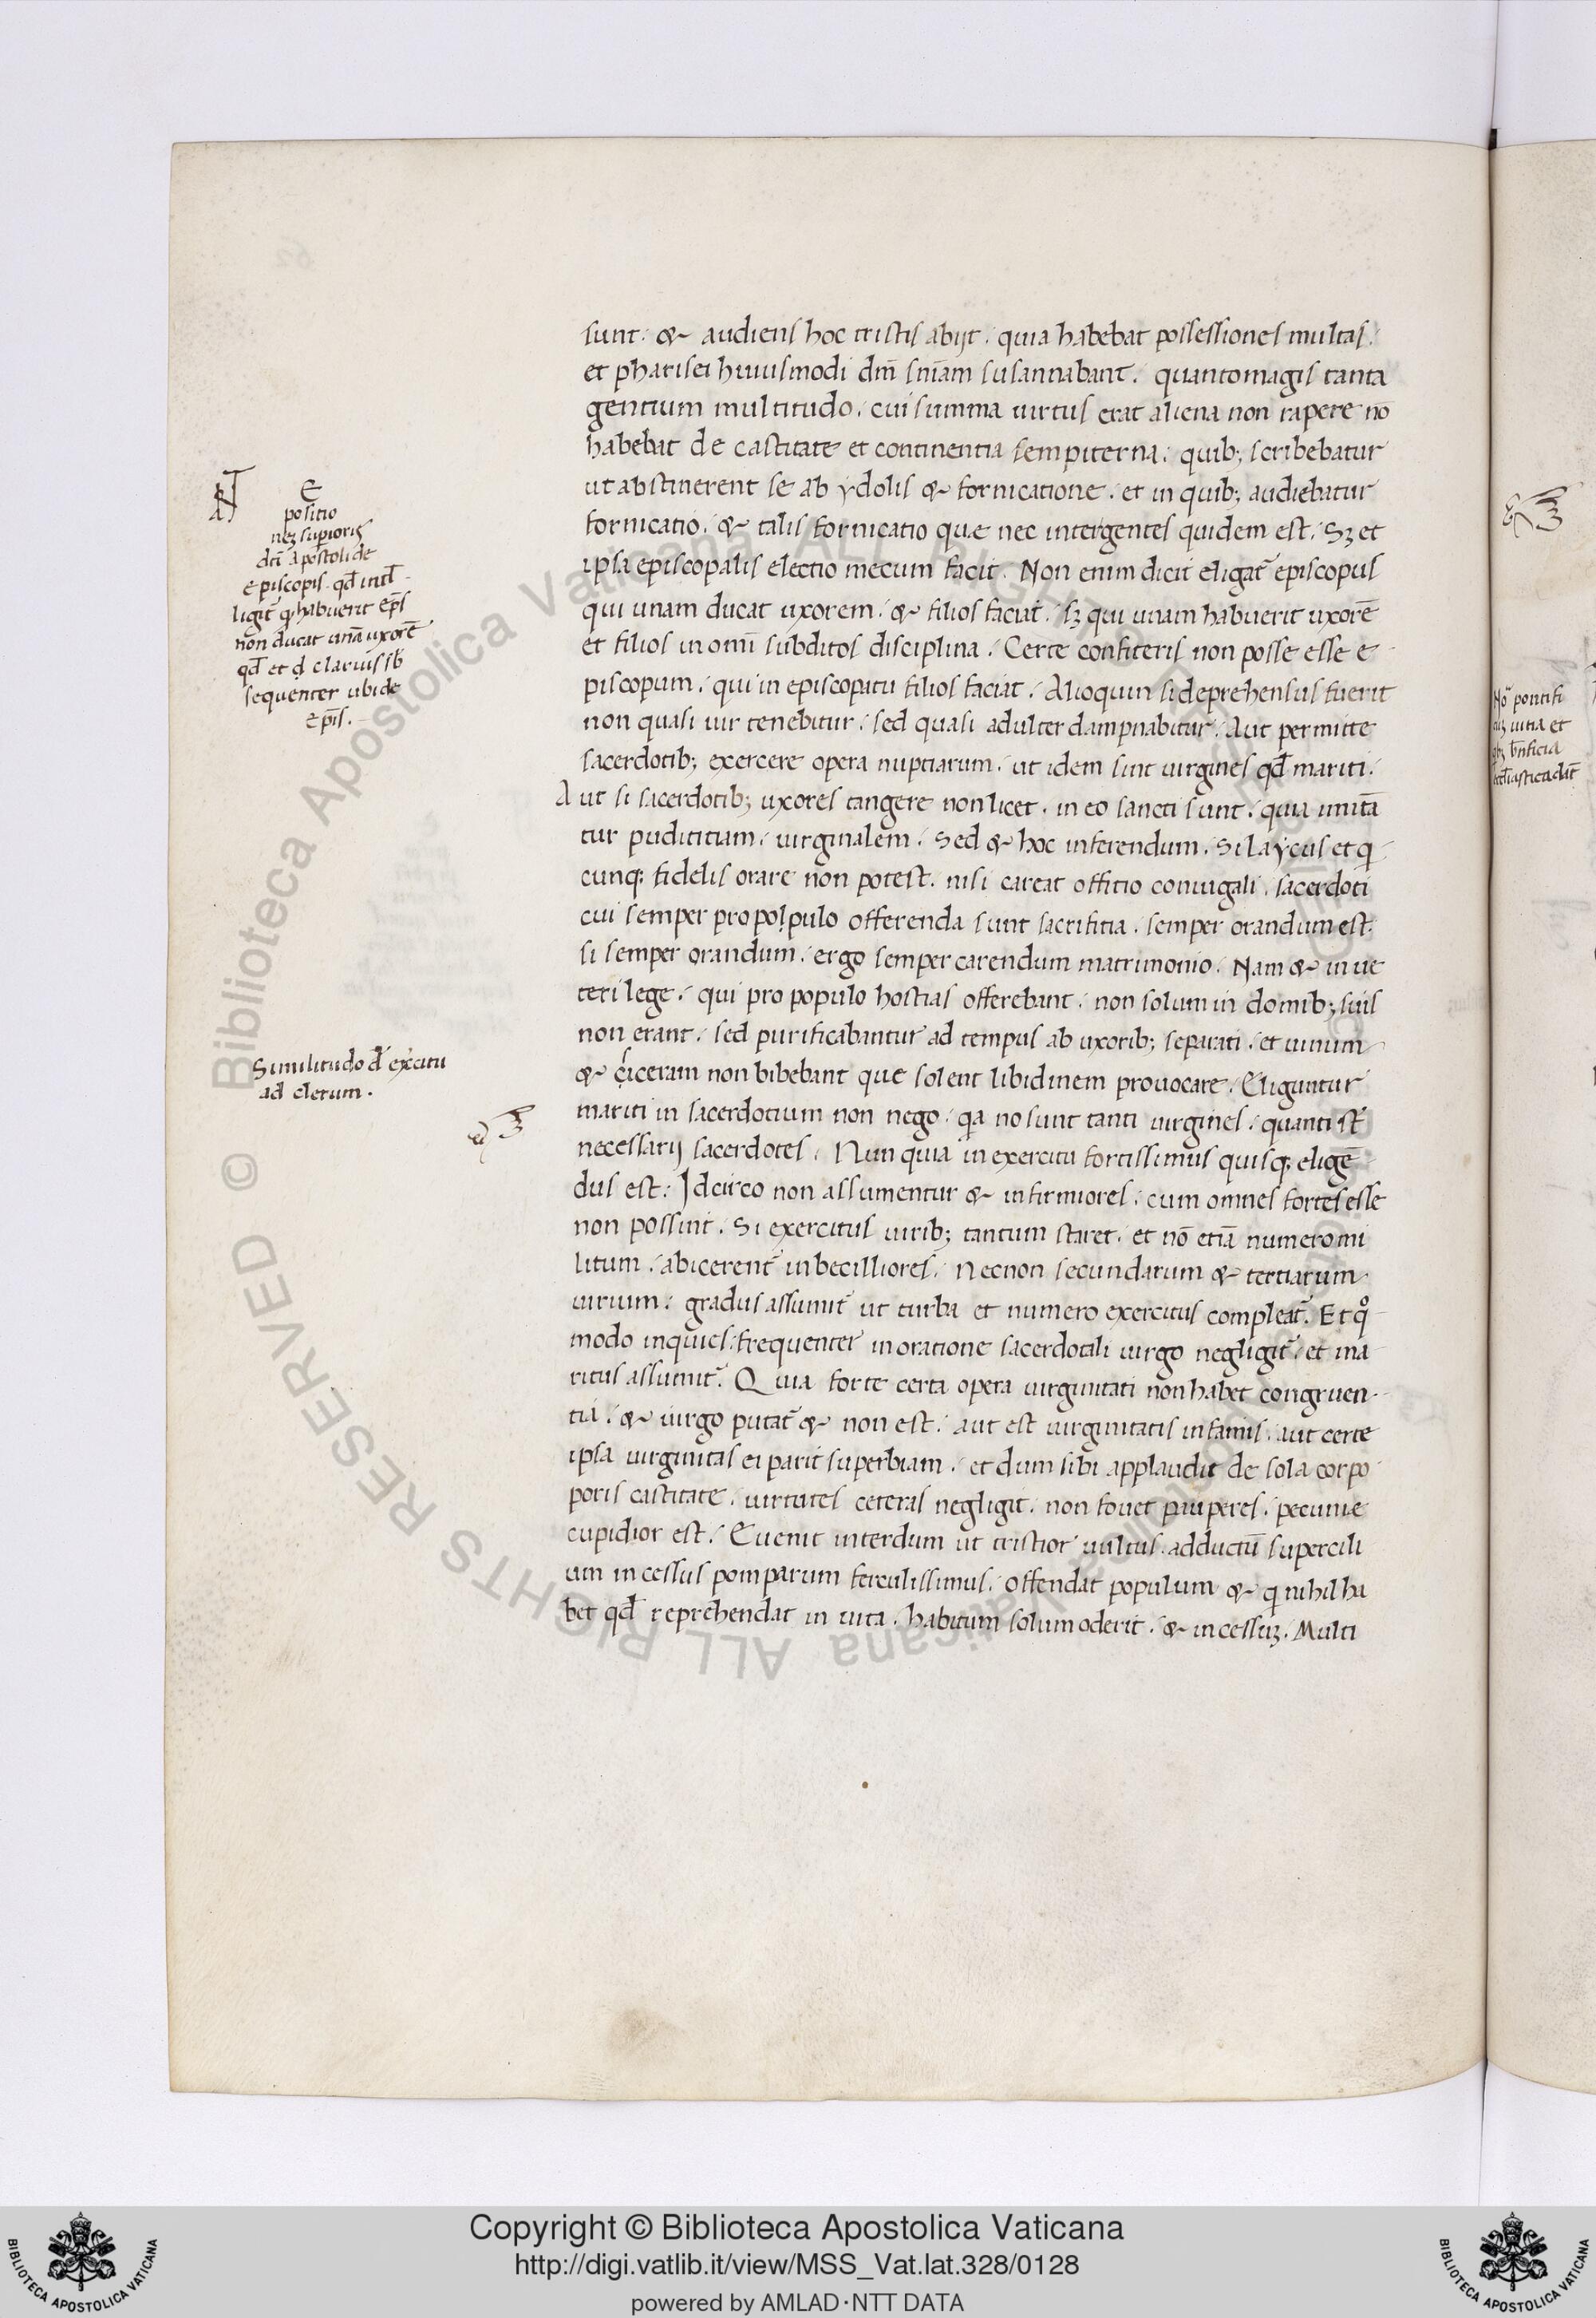 sunt. & audiens hoc tristis abijt. quia habebat possessiones multas.
et pharisei huiusmodi dn̄i snīam susannabant. quantomagis tanta
gentium multitudo. cui summa uirtus erat aliena non rapere nō
habebat de castitate et continentia sempiterna. quib; scribebatur
ut abstinerent se ab ydolis & fornicatione. et in quib; audiebatur
fornicatio. & talis fornicatio quæ nec inter gentes quidem est. Sȝ et
ipsa episcopalis electio mecum facit. Non enim dicit eligat̄ episcopus
qui unam ducat uxorem. & filios faciat. sȝ qui unam habuerit uxorē
et filios in omī subditos disciplina. Certe confiteris non posse esse e
piscopum. qui in episcopatu filios faciat. Alioquin si deprehensus fuerit
non quasi uir tenebitur. sed quasi adulter dampnabitur. Aut permitte
sacerdotib; exercere opera nuptiarum. ut idem sint uirgines qd̄ mariti.
Aut si sacerdotib; uxores tangere non licet. in eo sancti sunt. quia imitā
tur pudititiam. uirginalem. Sed & hoc inferendum. Si laycus et q
cunq; fidelis orare non potest. nisi careat offitio coniugali. sacerdoti
cui semper pro poppulo offerenda sunt sacrifitia. semper orandum est.
si semper orandum. ergo semper carendum matrimonio. Nam & in ue
teri lege. qui pro populo hostias offerebant. non solum in domib; suis
non erant. sed purificabantur ad tempus ab uxorib; separati. et uinum
& ciceram non bibebant que solent libidinem prouocare. Eliguntur
mariti in sacerdotium non nego. qa no sunt tanti uirgines. quanti st̄
necessarij sacerdotes. Nunquia in exercitu fortissimus quisq; eligē
dus est. Idcirco non assumentur & infirmiores. cum omnes fortes esse
non possint. Si exercitus uirib; tantum staret. et nō etiā numero mi
litum. abicerent̄ inbecilliores. Necnon secundarum & tertiarum
uirium. gradus assumit̄ ut turba et numero exercitus compleat̄. Et qͦ
modo inquies. frequenter in oratione sacerdotali uirgo negligit̄. et ma
ritus assumit̄. Quia forte certa opera uirginitati non habet congruen
tia. & uirgo putat̄ & non est. aut est uirginitatis infamis. aut certe
ipsa uirginitas ei parit superbiam. et dum sibi applaudit de sola corpo
poris castitate. uirtutes ceteras negligit. non fouet pauperes. pecunie
cupidior est. Euenit interdum ut tristior uultus. adductū supercili
um incessus pomparum ferculissimus. offendat populum & q nihil ha
bet qd̄ reprehendat in uita. habitum solum oderit. & incessuȝ. Multi
E
positio
neȝ superioris
dcī apostoli de
episcopis. qd̄ intl̄
ligit̄ q habuerit ep̄s
non ducat unā uxorē
qd̄ et d clarius sb̄
sequenter ubi de
ep̄is.
Similitudo d exercitu
ad clerum.
Noͣ pontifi
uitia et
bn̄ficia
Biblioteca Apostolica Vaticana ALL RIGHTS RESERVED ©
Copyright © Biblioteca Apostolica Vaticana
http://digi.vatlib.it/view/MSS_Vat.lat.328/0128
powered by AMLAD·NTT DATA
BIBLIOTECA APOSTOLICA VATICANA
BIBLIOTECA APOSTOLICA VATICANA